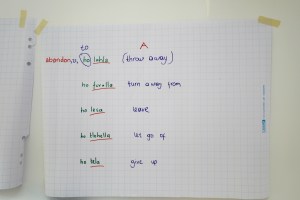 to A
abandon,v, ho lahla (throw away)
ho furalla turn away from
ho lesa leave
ho tlohella let go of
ho tela give up